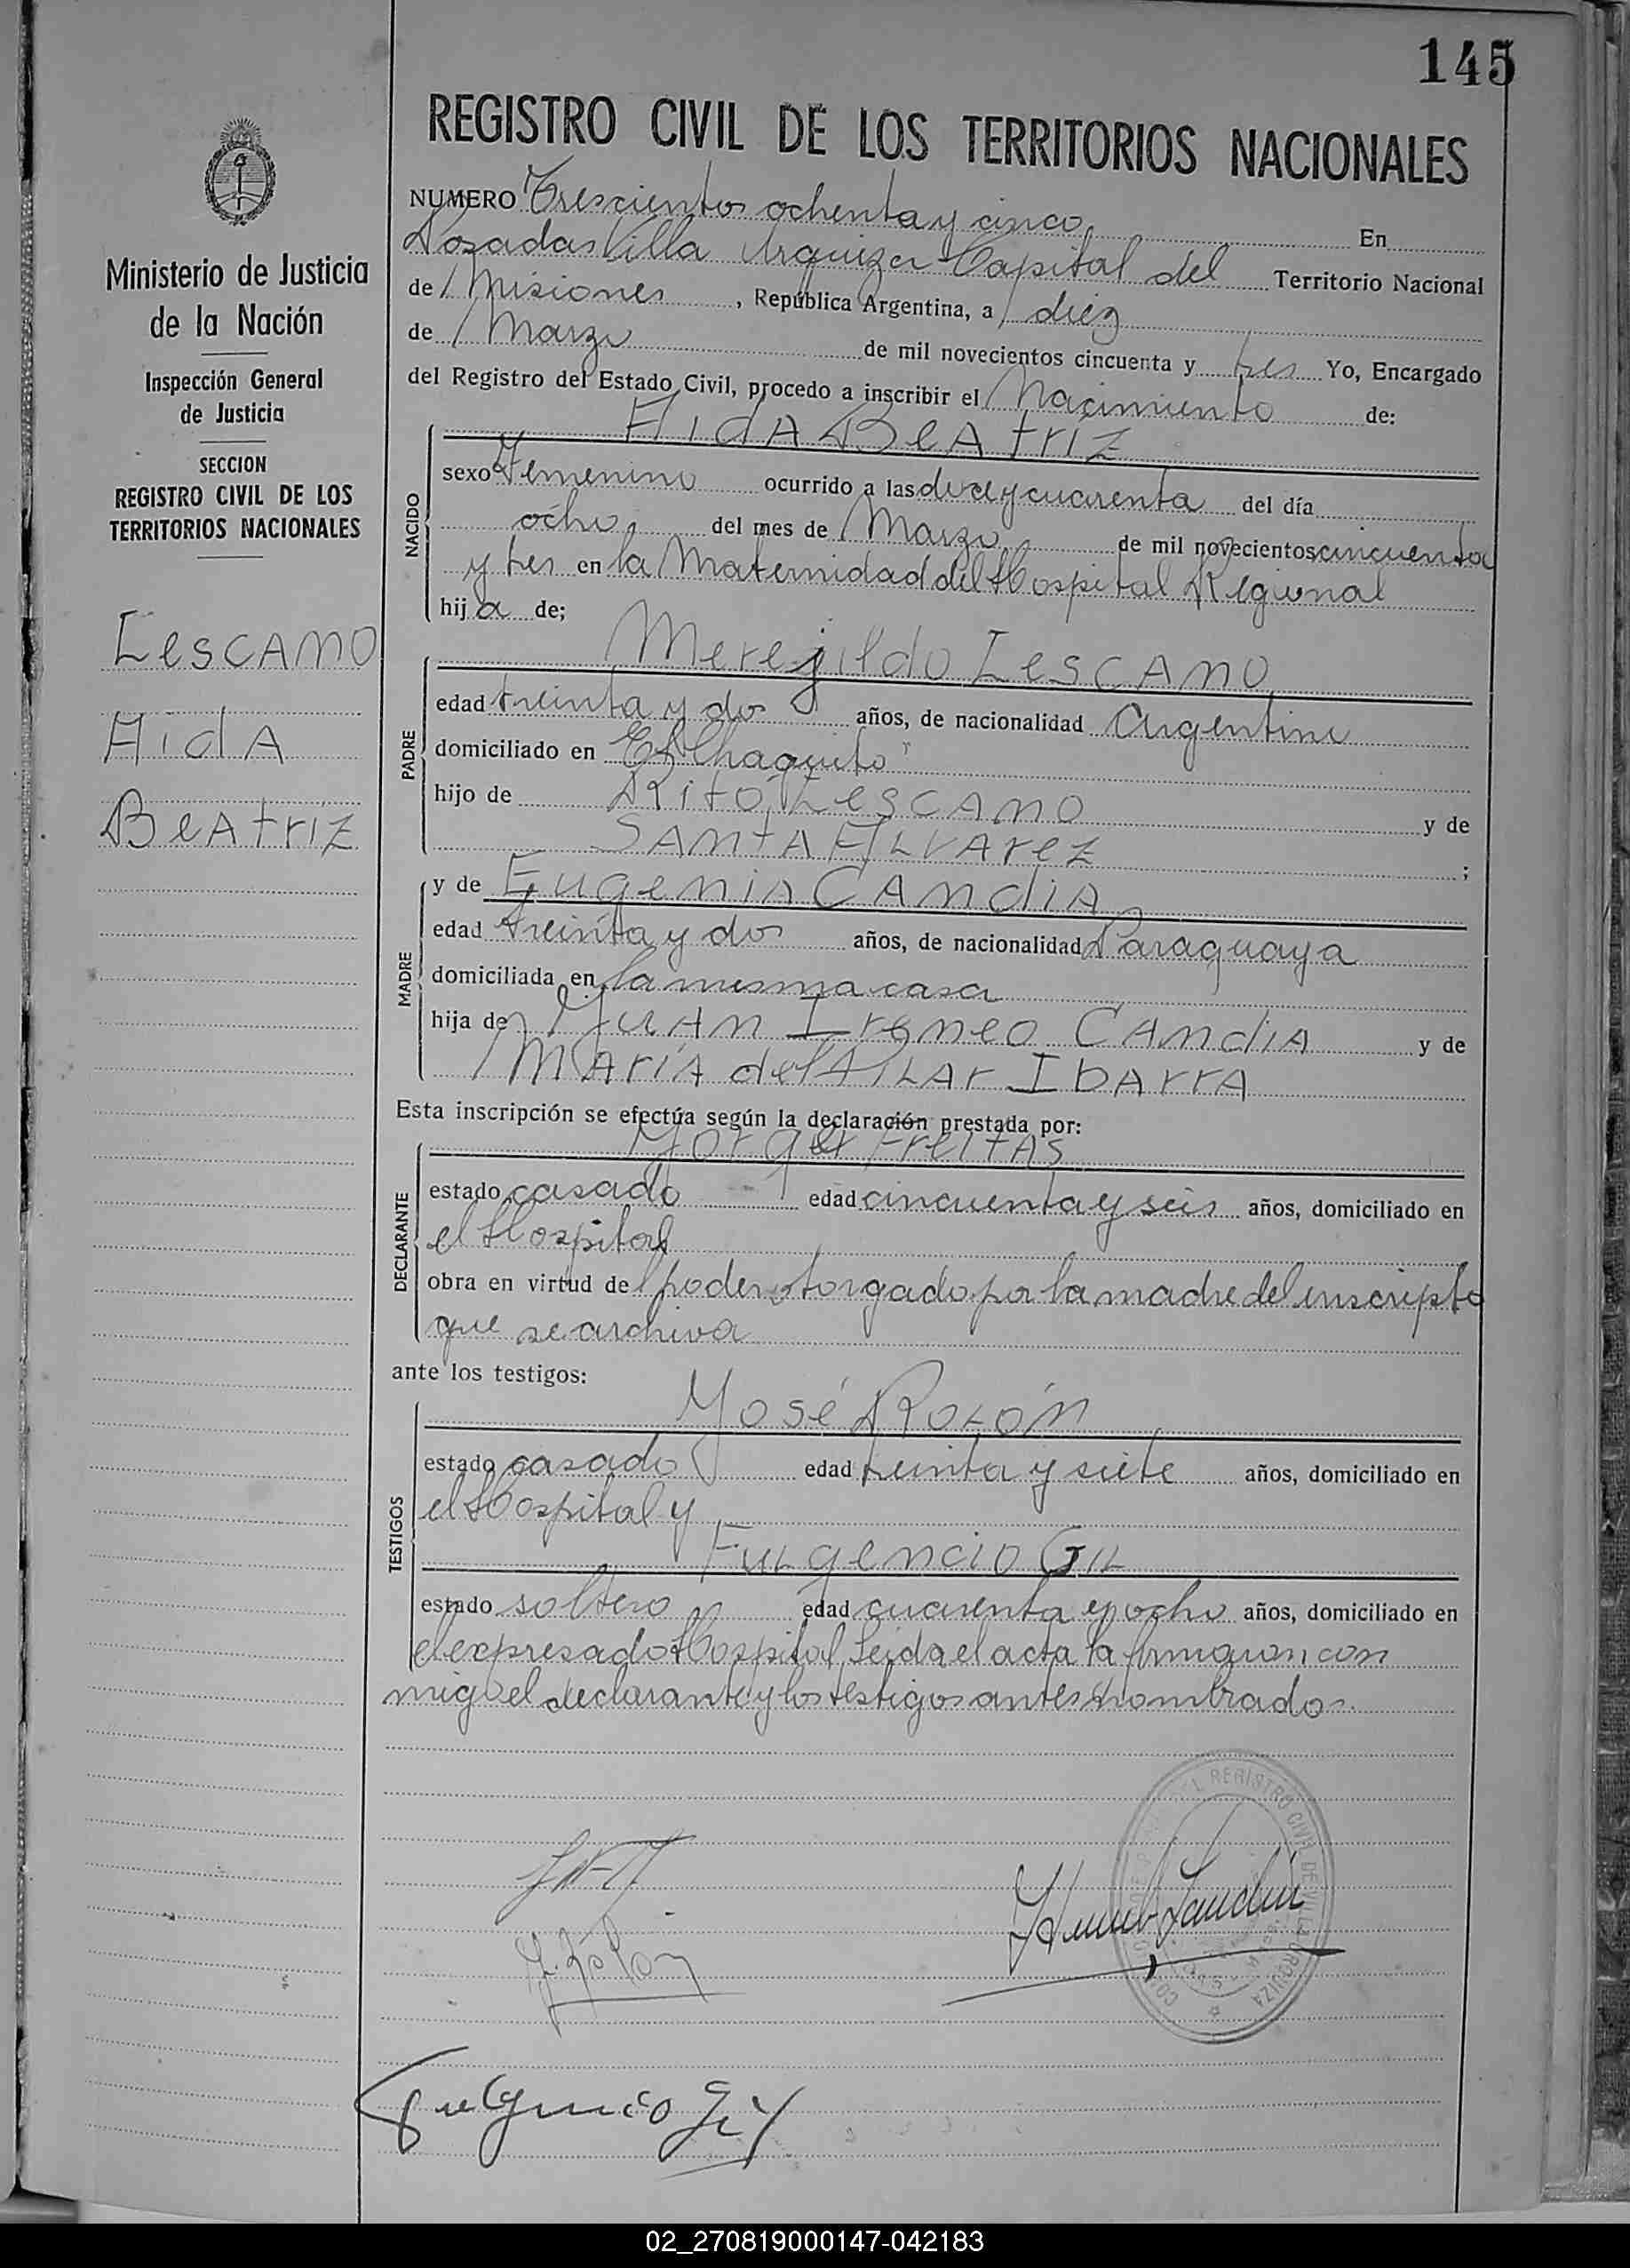 145
REGISTRO CIVIL DE LOS TERRITORIOS NACIONALES
Ministerio de Justicia
de la Nación
Inspección General
de Justicia
SECCION
REGISTRO CIVIL DE LOS
TERRITORIOS NACIONALES
Lescano
Aida
Beatriz
NUMERO Trescientos ochenta y cinco En
Posadas Villa Urquiza Capital del Territorio Nacional
de Misiones, República Argentina, a diez
de Marzo de mil novecientos cincuenta y tres Yo, Encargado
del Registro del Estado Civil, procedo a inscribir el Nacimiento de:
Aida Beatriz
NACIDO
sexo Femenino ocurrido a las doce y cuarenta del día
ocho del mes de Marzo de mil novecientos cincuenta
y tres en la Maternidad del Hospital Regional
hija de;
Merejildo Lescano
PADRE
edad treinta y dos años, de nacionalidad Argentino
domiciliado en "El Chaquito"
hijo de Rito Lescano y de
Santa Alvarez ;
MADRE
y de Eugenia Candia
edad treinta y dos años, de nacionalidad Paraguaya
domiciliada en la misma casa
hija de Juan Ireneo Candia y de
María del Pilar Ibarra
Esta inscripción se efectúa según la declaración prestada por:
Jorge Freitas
DECLARANTE
estado casado edad cincuenta y seis años, domiciliado en
el Hospital
obra en virtud del poder otorgado por la madre del inscripto
que se archiva
ante los testigos:
José Rolón
TESTIGOS
estado casado edad treinta y siete años, domiciliado en
el Hospital y
Fulgencio Gil
estado soltero edad cuarenta y ocho años, domiciliado en
el expresado Hospital. Leida el acta la firmaron con
migo el declarante y los testigos antes nombrados.
REGISTRO CIVIL DE VILLA URQUIZA
J. Rolon
Fulgencio Gil
02_270819000147-042183